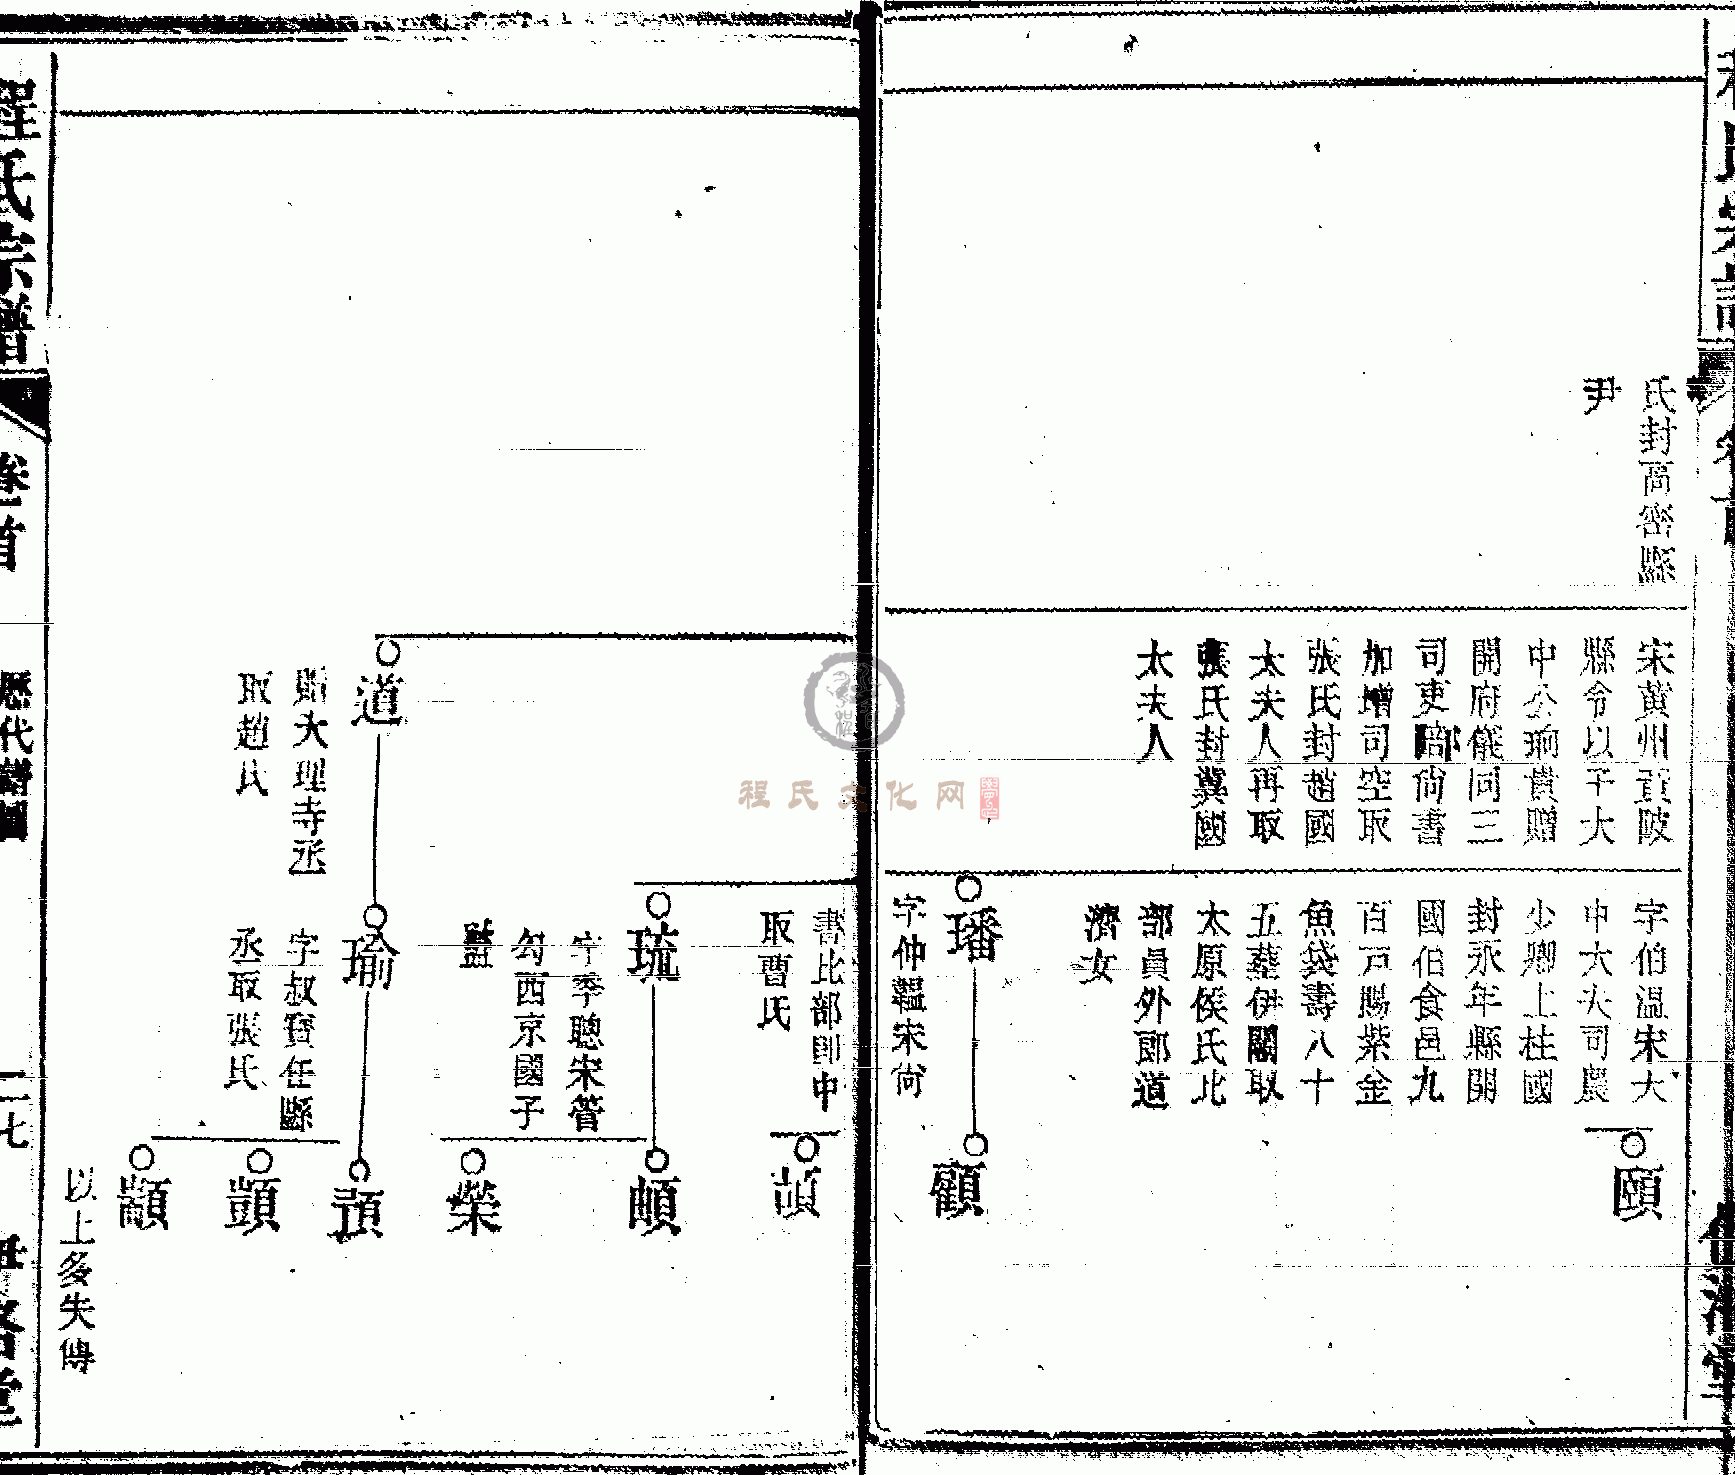 氏封高密縣
尹
宋黃州黃陂
縣令以子大
中公珦貴贈
開府儀同三
司吏部尚書
加增司空取
張氏封趙國
太夫人再取
張氏封冀國
太夫人
字伯温宋大
中大夫司農
少卿上柱國
封永年縣開
國伯食邑九
百戸賜紫金
魚袋壽八十
五葬伊闕取
太原侯氏比
部員外郎道
濟女
頤
璠
字仲韞宋尚
顧
書比部郎中
取曹氏
琉
字季聰宋管
勾西京國子
監
榮
道
贈大理寺丞
取趙氏
瑜
字叔寶任縣
丞取張氏
顗
顓
以上多失傳
程氏宗譜
卷首
歷代譜圖
二七
程氏文化网